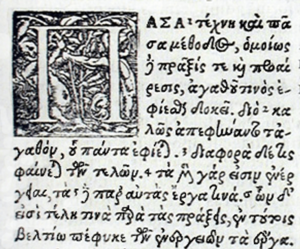 ΠΑΣΑ τέχνη καὶ πᾶ
σα μέθοδος, ὁμοίως
δὲ πρᾶξίς τε καὶ προαί
ρεσις, ἀγαθοῦ τινὸς ἐ-
φίεσθαι δοκεῖ. διὸ 2 κα
λῶς ἀπεφήναντο τἀ-
γαθὸν, οὗ πάντα ἐφίεται. 3 διαφορὰ δέ τις
φαίνεται τῶν τελῶν. 4 τὰ μὲν γάρ εἰσιν ἐνέρ
γειαι, τὰ δὲ παρ' αὐτὰς ἔργα τινά. 5 ὧν δ'
εἰσὶ τέλη τινὰ παρὰ τὰς πράξεις, ἐν τούτοις
βελτίω πέφυκε τῶν ἐνεργειῶν τὰ ἔργα.